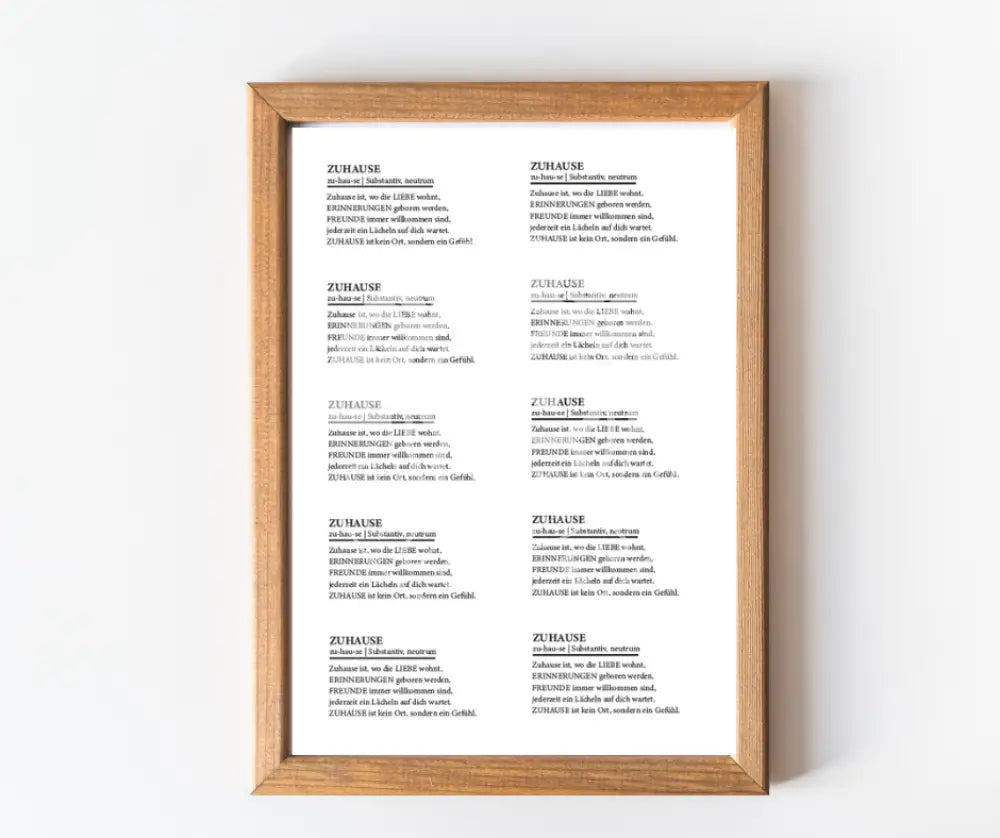 ZUHAUSE
zu-hau-se | Substantiv, neutrum
Zuhause ist, wo die LIEBE wohnt,
ERINNERUNGEN geboren werden,
FREUNDE immer willkommen sind,
jederzeit ein Lächeln auf dich wartet.
ZUHAUSE ist kein Ort, sondern ein Gefühl.
ZUHAUSE
zu-hau-se | Substantiv, neutrum
Zuhause ist, wo die LIEBE wohnt,
ERINNERUNGEN geboren werden,
FREUNDE immer willkommen sind,
jederzeit ein Lächeln auf dich wartet.
ZUHAUSE ist kein Ort, sondern ein Gefühl.
ZUHAUSE
zu-hau-se | Substantiv, neutrum
Zuhause ist, wo die LIEBE wohnt,
ERINNERUNGEN geboren werden,
FREUNDE immer willkommen sind,
jederzeit ein Lächeln auf dich wartet.
ZUHAUSE ist kein Ort, sondern ein Gefühl.
ZUHAUSE
zu-hau-se | Substantiv, neutrum
Zuhause ist, wo die LIEBE wohnt,
ERINNERUNGEN geboren werden,
FREUNDE immer willkommen sind,
jederzeit ein Lächeln auf dich wartet.
ZUHAUSE ist kein Ort, sondern ein Gefühl.
ZUHAUSE
zu-hau-se | Substantiv, neutrum
Zuhause ist, wo die LIEBE wohnt,
ERINNERUNGEN geboren werden,
FREUNDE immer willkommen sind,
jederzeit ein Lächeln auf dich wartet.
ZUHAUSE ist kein Ort, sondern ein Gefühl.
ZUHAUSE
zu-hau-se | Substantiv, neutrum
Zuhause ist, wo die LIEBE wohnt,
ERINNERUNGEN geboren werden,
FREUNDE immer willkommen sind,
jederzeit ein Lächeln auf dich wartet.
ZUHAUSE ist kein Ort, sondern ein Gefühl.
ZUHAUSE
zu-hau-se | Substantiv, neutrum
Zuhause ist, wo die LIEBE wohnt,
ERINNERUNGEN geboren werden,
FREUNDE immer willkommen sind,
jederzeit ein Lächeln auf dich wartet.
ZUHAUSE ist kein Ort, sondern ein Gefühl.
ZUHAUSE
zu-hau-se | Substantiv, neutrum
Zuhause ist, wo die LIEBE wohnt,
ERINNERUNGEN geboren werden,
FREUNDE immer willkommen sind,
jederzeit ein Lächeln auf dich wartet.
ZUHAUSE ist kein Ort, sondern ein Gefühl.
ZUHAUSE
zu-hau-se | Substantiv, neutrum
Zuhause ist, wo die LIEBE wohnt,
ERINNERUNGEN geboren werden,
FREUNDE immer willkommen sind,
jederzeit ein Lächeln auf dich wartet.
ZUHAUSE ist kein Ort, sondern ein Gefühl.
ZUHAUSE
zu-hau-se | Substantiv, neutrum
Zuhause ist, wo die LIEBE wohnt,
ERINNERUNGEN geboren werden,
FREUNDE immer willkommen sind,
jederzeit ein Lächeln auf dich wartet.
ZUHAUSE ist kein Ort, sondern ein Gefühl.